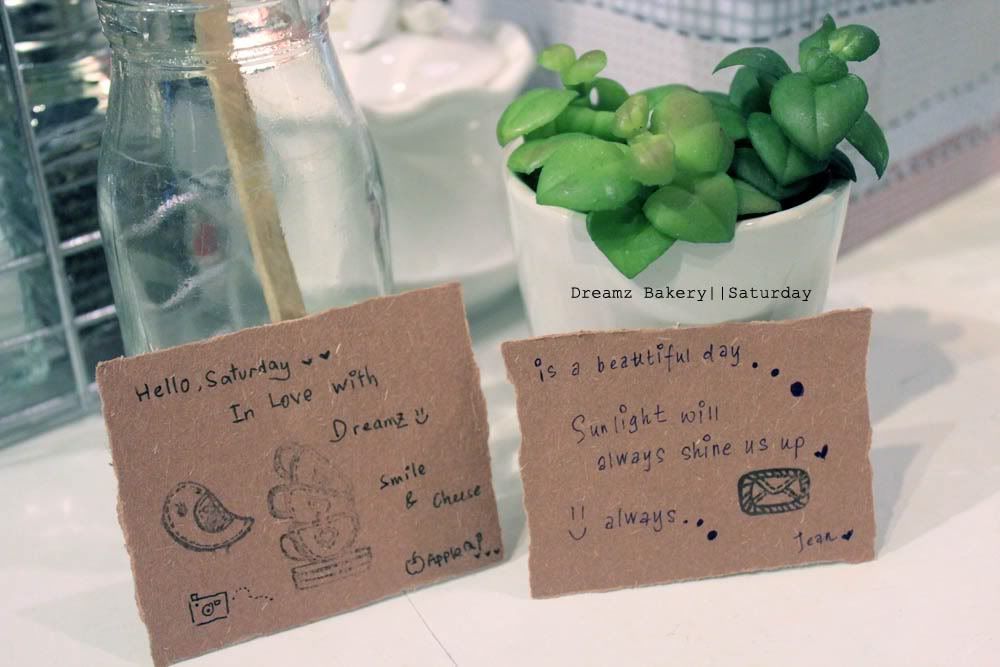 Dreamz Bakery||Saturday
Hello, Saturday
In Love with
Dreamz
Smile
& Cheese
is a beautiful day...
Sunlight will
always shine us up
always...
Jean